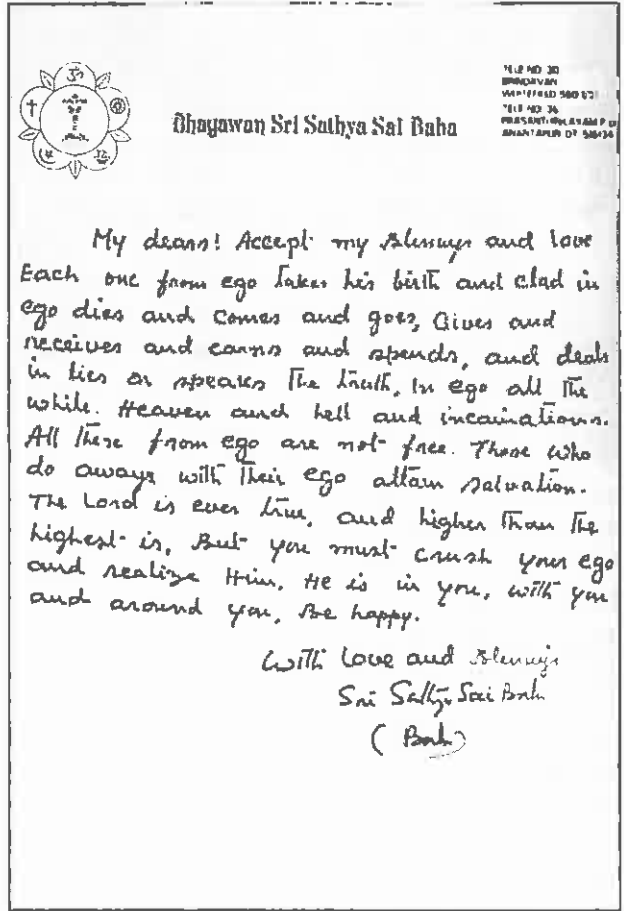 TELE NO: 30
BRINDAVAN
WHITEFIELD 560
TELE NO: 36
PRASANTHI NILAYAM P
ANANTAPUR DT
Bhagawan Sri Sathya Sai Baba
My dears! Accept my Blessings and love
Each one from ego takes his birth and clad in
ego dies and comes and goes, Gives and
receives and earns and spends, and deals
in lies or speaks the truth, in ego all the
while. Heaven and hell and incainations.
All these from ego are not free. Those who
do away with their ego attain salvation.
The Lord is ever true, and higher than the
highest is, But you must crush your ego
and realize Him. He is in you, with you
and around you, Be happy.
With love and Blessings
Sri Sathya Sai Baba
(Baba)